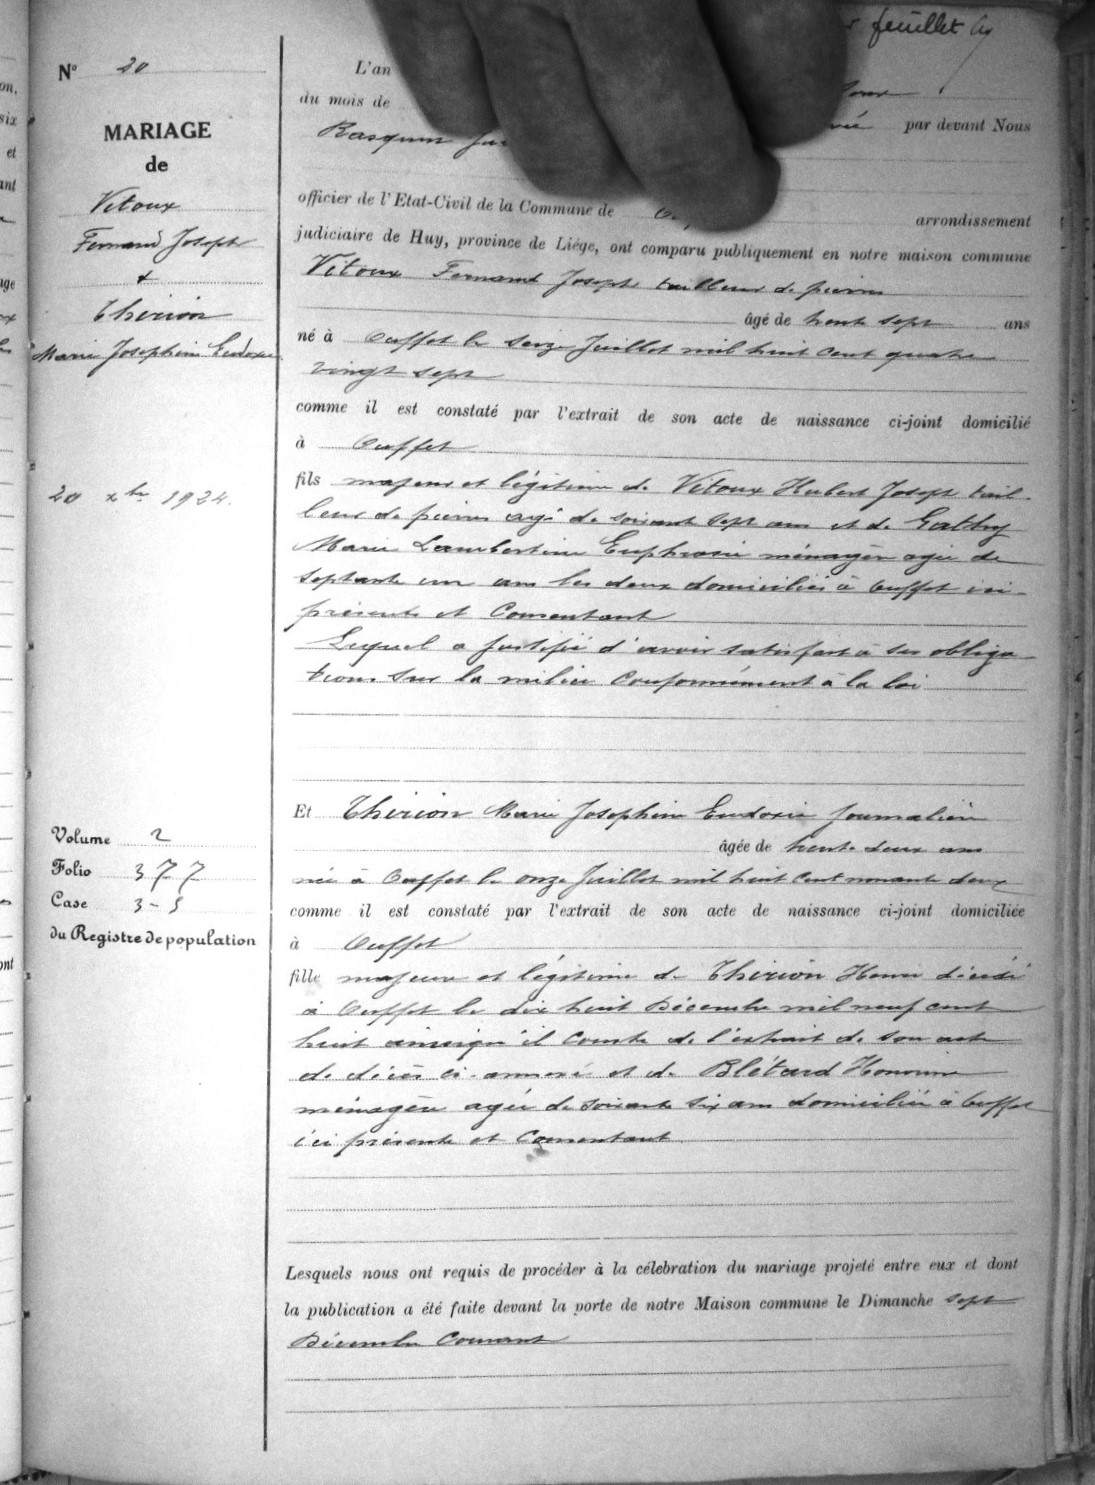 feuillet
N° 20
L'an
du mois de
MARIAGE
de
Rasquin
par devant Nous
Vitoux
Fernand Joseph
+
Thirion
Marie Josephine Eudoxie
officier de l'Etat-Civil de la Commune de
arrondissement
judiciaire de Huy, province de Liége, ont comparu publiquement en notre maison commune
Vitoux Fernand Joseph tailleur de pierres
âgé de trente sept ans
né à Ouffet le seize Juillet mil huit cent quatre
vingt sept
comme il est constaté par l'extrait de son acte de naissance ci-joint domicilié
à Ouffet
20 xbre 1924.
fils majeur et légitime de Vitoux Hubert Joseph tail-
leur de pierres agé de soixante sept ans et de Gathy
Marie Lambertine Euphrosie ménagère agée de
septante un ans les deux domiciliés à Ouffet ici-
présents et Consentant
Lequel a justifié d'avoir satisfait à ses obliga
tions sur la milice Conformément à la loi
Et Thirion Marie Josephine Eudoxie journalière
âgée de trente deux ans
née à Ouffet le onze Juillet mil huit cent nonante deux
comme il est constaté par l'extrait de son acte de naissance ci-joint domiciliée
à Ouffet
fille majeure et légitime de Thirion Henri décédé
à Ouffet le dix huit Décembre mil neuf cent
huit ainsi qu'il Conste de l'extrait de son acte
de décès ci-annexé et de Blétard Honorine
ménagère agée de soixante six ans domiciliée à Ouffet
ici présente et Consentant
Volume 2
Folio 377
Case 3-5
du Registre de population
Lesquels nous ont requis de procéder à la célebration du mariage projeté entre eux et dont
la publication a été faite devant la porte de notre Maison commune le Dimanche sept
Décembre Courant